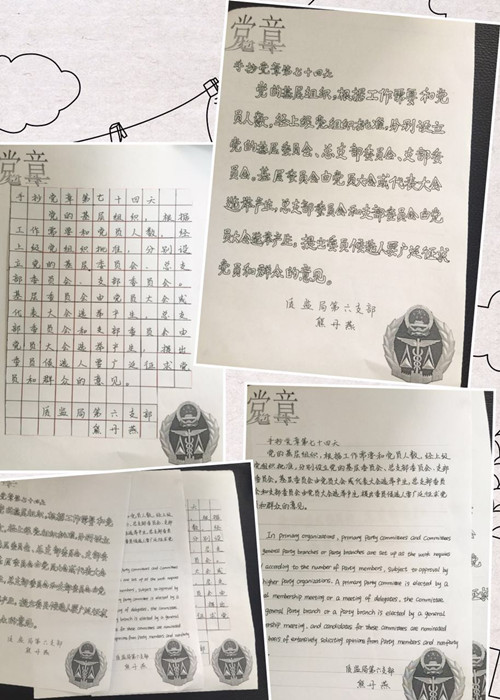 党章
手抄党章第七十四天
党的基层组织，根据工作需要和党
员人数，经上级党组织批准，分别设立
党的基层委员会、总支部委员会、支部委
员会。基层委员会由党员大会或代表大会
选举产生，总支部委员会和支部委员会由党
员大会选举产生，提出委员候选人要广泛征求
党员和群众的意见。
质监局第六支部
熊丹燕
党章
手抄党章第七十四天
党的基层组织，根据
工作需要和党员人数，经
上级党组织批准，分别设
立党的基层委员会、总支
部委员会、支部委员会。
基层委员会由党员大会或
代表大会选举产生，总支
部委员会和支部委员会由
党员大会选举产生，提出
委员候选人要广泛征求党
员和群众的意见。
质监局第六支部
熊丹燕
党章
手抄党章第七十四天
党的基层组织，根据工作需要和党员人数，经上级
党组织批准，分别设立党的基层委员会、总支部委员会、支部
委员会。基层委员会由党员大会或代表大会选举产生，总支部委员
会和支部委员会由党员大会选举产生，提出委员候选人要广泛征求党
员和群众的意见。
In primary organizations, primary Party committees and Committees
general Party branches or Party branches are set up as the work requires
according to the number of Party members, subject to approval by
higher Party organizations. A primary Party committee is elected by a
membership meeting or a meeting of delegates, the Committee
general Party branch or a Party branch is elected by a general
meeting, and candidates for these committees are nominated
of extensively soliciting opinions from Party members and nonParty
质监局第六支部
熊丹燕
质监局第六支部
熊丹燕